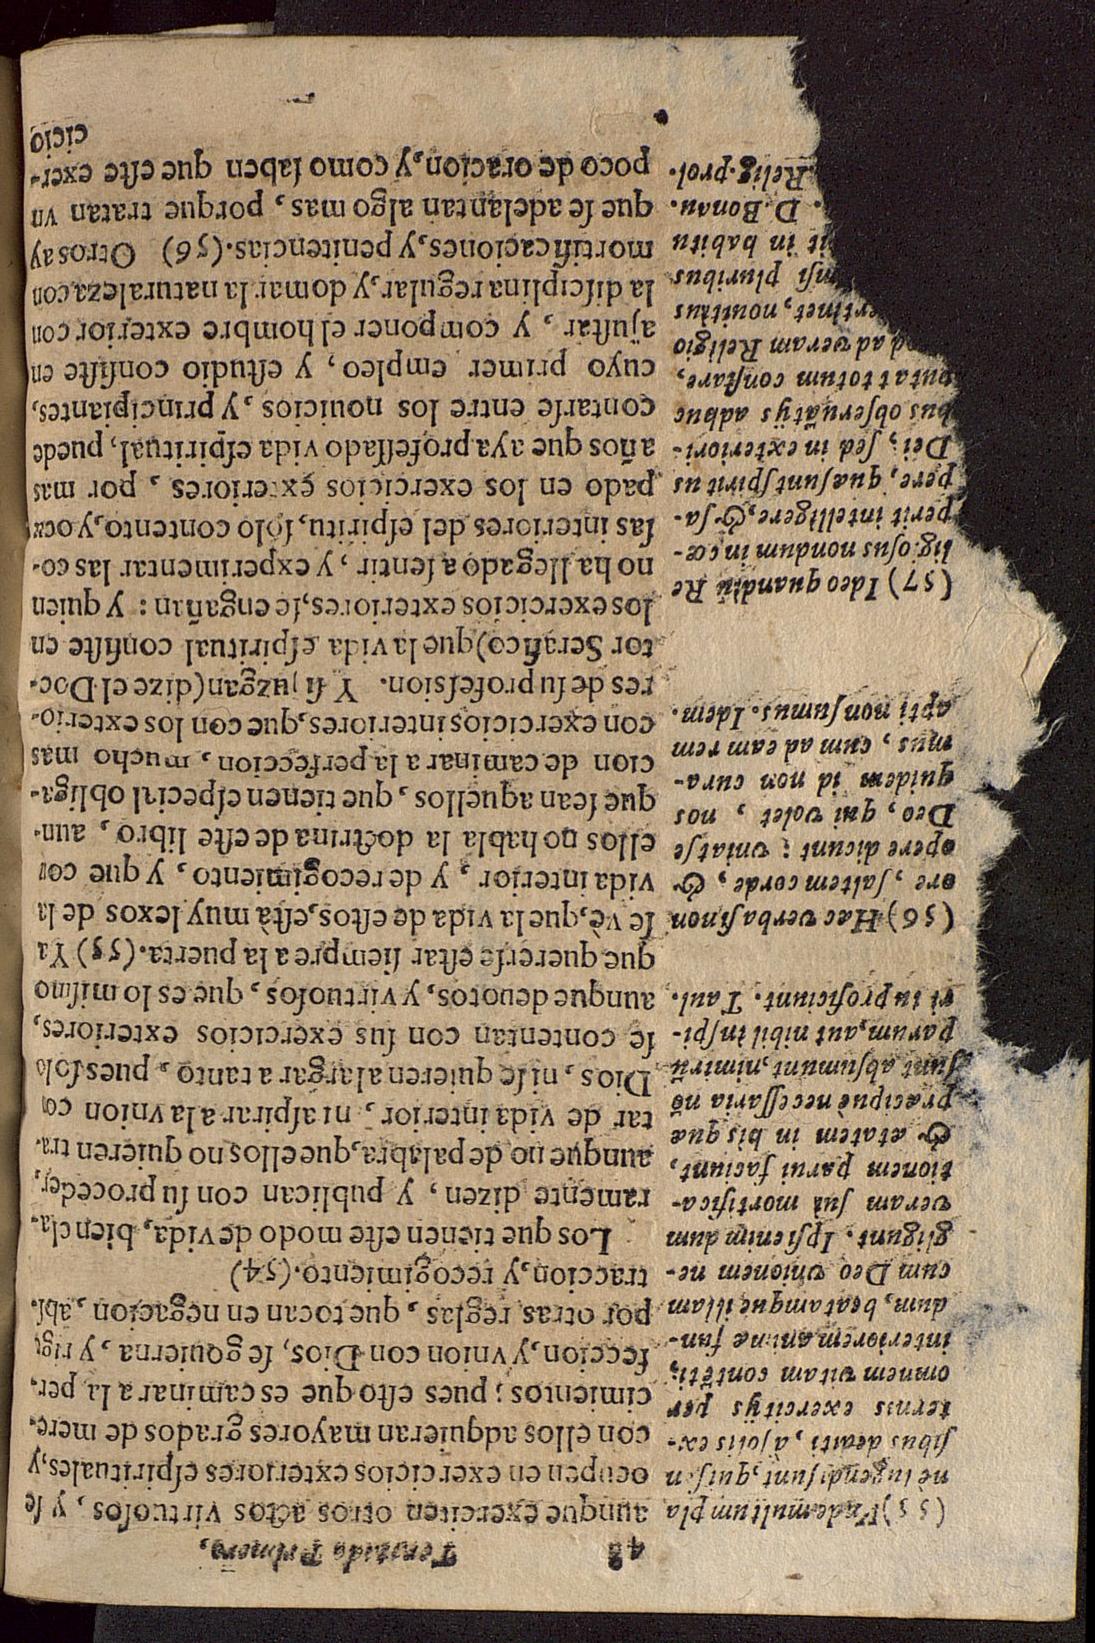 48 Tratado Primero,
aunque exerciten otros actos virtuosos, y se
ocupen en exercicios exteriores espirituales, y
con ellos adquieran mayores grados de mere-
cimientos; pues esto que es caminar a la per-
feccion, y vnion con Dios, se gouierna, y rige
por otras reglas, que tocan en negacion, abs-
traccion, y recogimiento. (54)
Los que tienen este modo de vida, bien cla-
ramente dizen, y publican con su proceder,
aunque no de palabra, que ellos no quieren tra-
tar de vida interior, ni aspirar a la vnion con
Dios, ni se quieren alargar a tanto, pues solo
se contentan con sus exercicios exteriores,
aunque deuotos, y virtuosos, que es lo mismo
que quererse estar siempre a la puerta. (55) Ya
se vè, que la vida de estos, està muy lexos de la
vida interior, y de recogimiento, y que con
ellos no habla la doctrina de este libro, aun-
que sean aquellos, que tienen especial obliga-
cion de caminar a la perfeccion, mucho mas
con exercicios interiores, que con los exterio-
res de su profession. Y si juzgan (dize el Doc-
tor Serafico) que la vida espiritual consiste en
los exercicios exteriores, se engañan: y quien
no ha llegado a sentir, y experimentar las co-
sas interiores del espiritu, solo contento, y ocu
pado en los exercicios exteriores, por mas
años que aya professado vida espiritual, puede
contarse entre los nouicios, y principiantes,
cuyo primer empleo, y estudio consiste en
ajustar, y componer el hombre exterior con
la disciplina regular, y domar la naturaleza con
mortificaciones, y penitencias. (56) Otros ay
que se adelantan algo mas, porque tratan vn
poco de oracion, y como saben que este exer-
cicio
(53) Vndemultum pla
nè lugendi sunt, quisu
sibus dediti, a solis ex-
ternis exercitijs per
omnem vitam contēti,
interiorem animæ fun-
dum, beatamque illam
cum Deo vnionem ne-
gligunt. Ipsi enim dum
veram sui mortifica-
tionem parui faciunt,
& ætatem in his quæ
præcipuè necessaria nō
sunt absumunt, nimirū
parum, aut nihil in spi-
ri tu proficiunt. Taul.
(56) Hæc verba si non
ore, saltem corde, &
opere dicunt: vniatse
Deo, qui volet, nos
quidem id non cura-
mus, cum ad eam rem
apti non sumus. Idem.
(57) Ideo quandiù Re
ligiosus nondum in cœ-
perit intelligere, & sa-
pere, quæ sunt spiritus
Dei; sed in exteriori-
bus obseruātijs adhuc
putat totum constare,
d ad veram Religio
ertinet, nouitius
nsi pluribus
it in habitu
. D. Bonau.
Relig. prol.